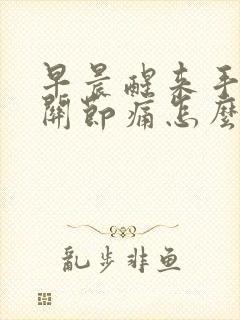 早晨醒来手
關節痛怎麼
亂步非鱼